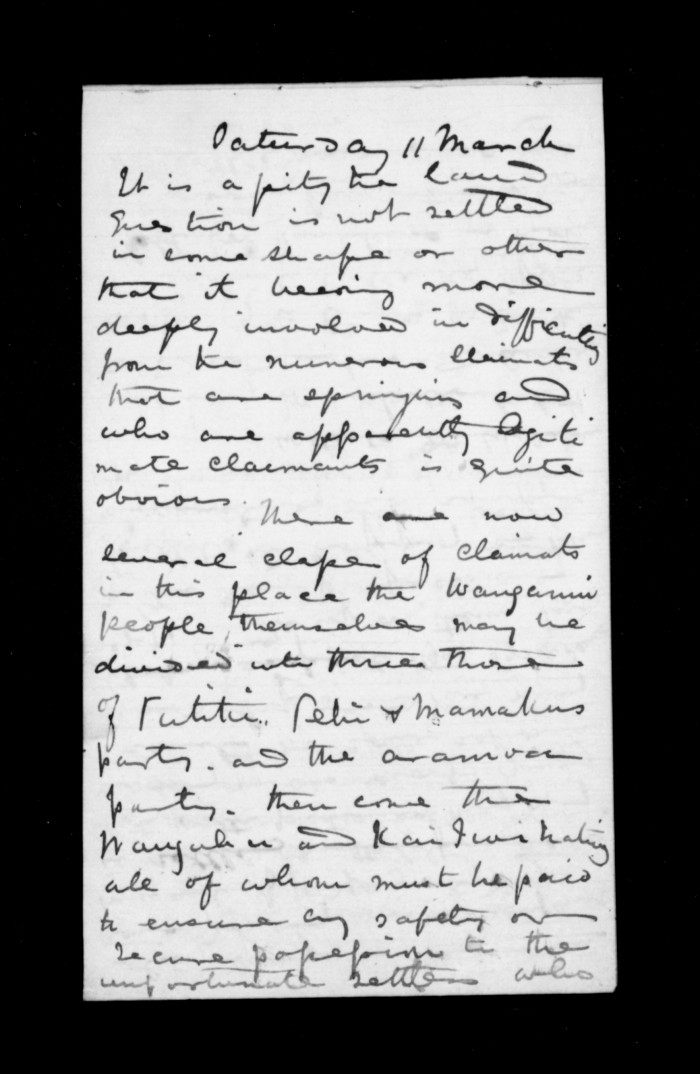 Saturday 11 March
It is a pity the land
question is not settled
in some shape or other
that it becoming more
deeply involved in difficulty
from the numerous claimats
that are springing and
who are apparently legiti
mate claimants is quite
obvious. There are now
several classes of claimats
in this place the Wanganui
people themselves may be
divided into three those
of Tutitu. Pehi & Mamakus
party. and the aramoa
party. then come the
Wangaehu and Kai Iwi nating
all of whom must be paid
to ensure any safety or
secure possession to the
unfortunate settlers who